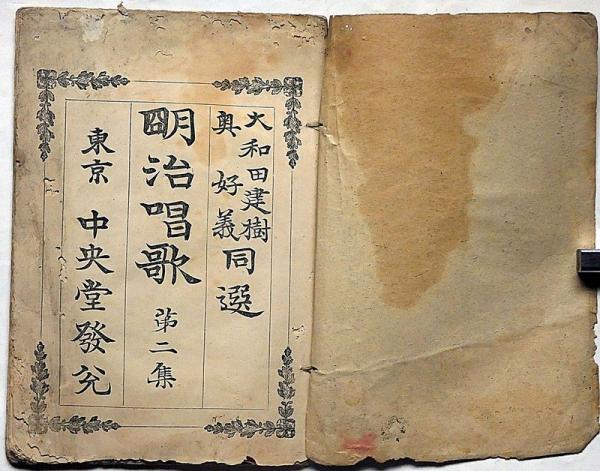 大和田建樹
奥好義
同選
明治唱歌
第二集
東京
中央堂發兌